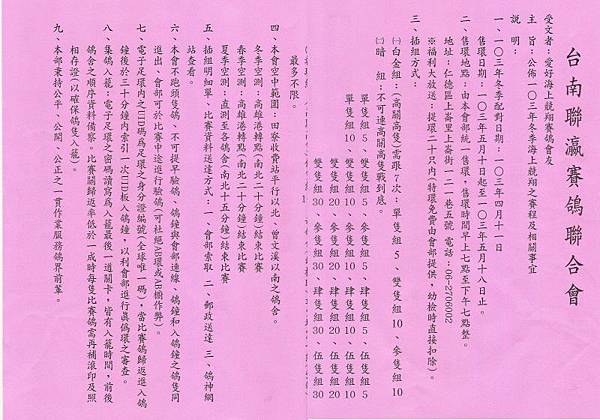 台南聯瀛賽鴿聯合會
受文者：愛好海上競翔賽鴿會友
主　旨：公佈一○三年冬季海上競翔之賽程及相關事宜
說　明：
一、一○三年冬季配對日期：一○三年四月十一日
售環日期：一○三年五月十日起至一○三年五月十八日止。
二、售環地點：由本會部統一售環，售環時間早上七點至下午七點整。
地址：仁德區上崙里上崙街一二一巷五號 電話：06-2706002
※福利大放送：提環二十只內(特環免費由會部提供，幼檢時直接扣除)。
三、插組方式：
㈠白金組：(高關高隻)需跟7次：單隻組5、雙隻組10、參隻組10
單隻組5、雙隻組5、參隻組5、肆隻組5、伍隻組5
單隻組10、雙隻組10、參隻組10、肆隻組10、伍隻組10
雙隻組20、參隻組20、肆隻組20、伍隻組20
雙隻組30、參隻組30、肆隻組30、伍隻組30
㈡暗　組：不可連高關高隻戰到底。
最多不限。
四、本會空中範圍：田寮收費站平行以北，曾文溪以南之鴿舍。
冬季空間：高雄港轉點(南北二十分鐘)結束比賽
春季空間：高雄港轉點(南北二十分鐘)結束比賽
夏季空間：直測至各鴿舍(南北十五分鐘)結束比賽
五、插組明細單、比賽資料送達方式：一、會部索取 二、郵政送達 三、鴿神網
站查看。
六、本會不跑頭隻鴿、不可提早驗鴿、鴿鐘與會部連線、鴿鐘和入鴿鐘之鴿隻同
進出、會部可於比賽中途進行驗鴿(可杜絕AB環或AB櫥作弊)。
七、電子足環內之IID碼為足環之身分證編號(全球唯一碼)，當比賽鴿歸返進入鴿
鐘後於三十分鐘內索引一次IID板入鴿鐘，以利會部進行真偽環之審查。
八、集鴿入籠：電子足環之密碼讀寫為入籠最後一道關卡，皆有入籠時間，前後
鴿舍之順序資料備察。比賽關歸返率低於一成時每隻比賽鴿需再補滾印及照
相存證(以確保鴿隻入籠)。
九、本部秉持公平、公開、公正之一貫作業服務鴿界前輩。